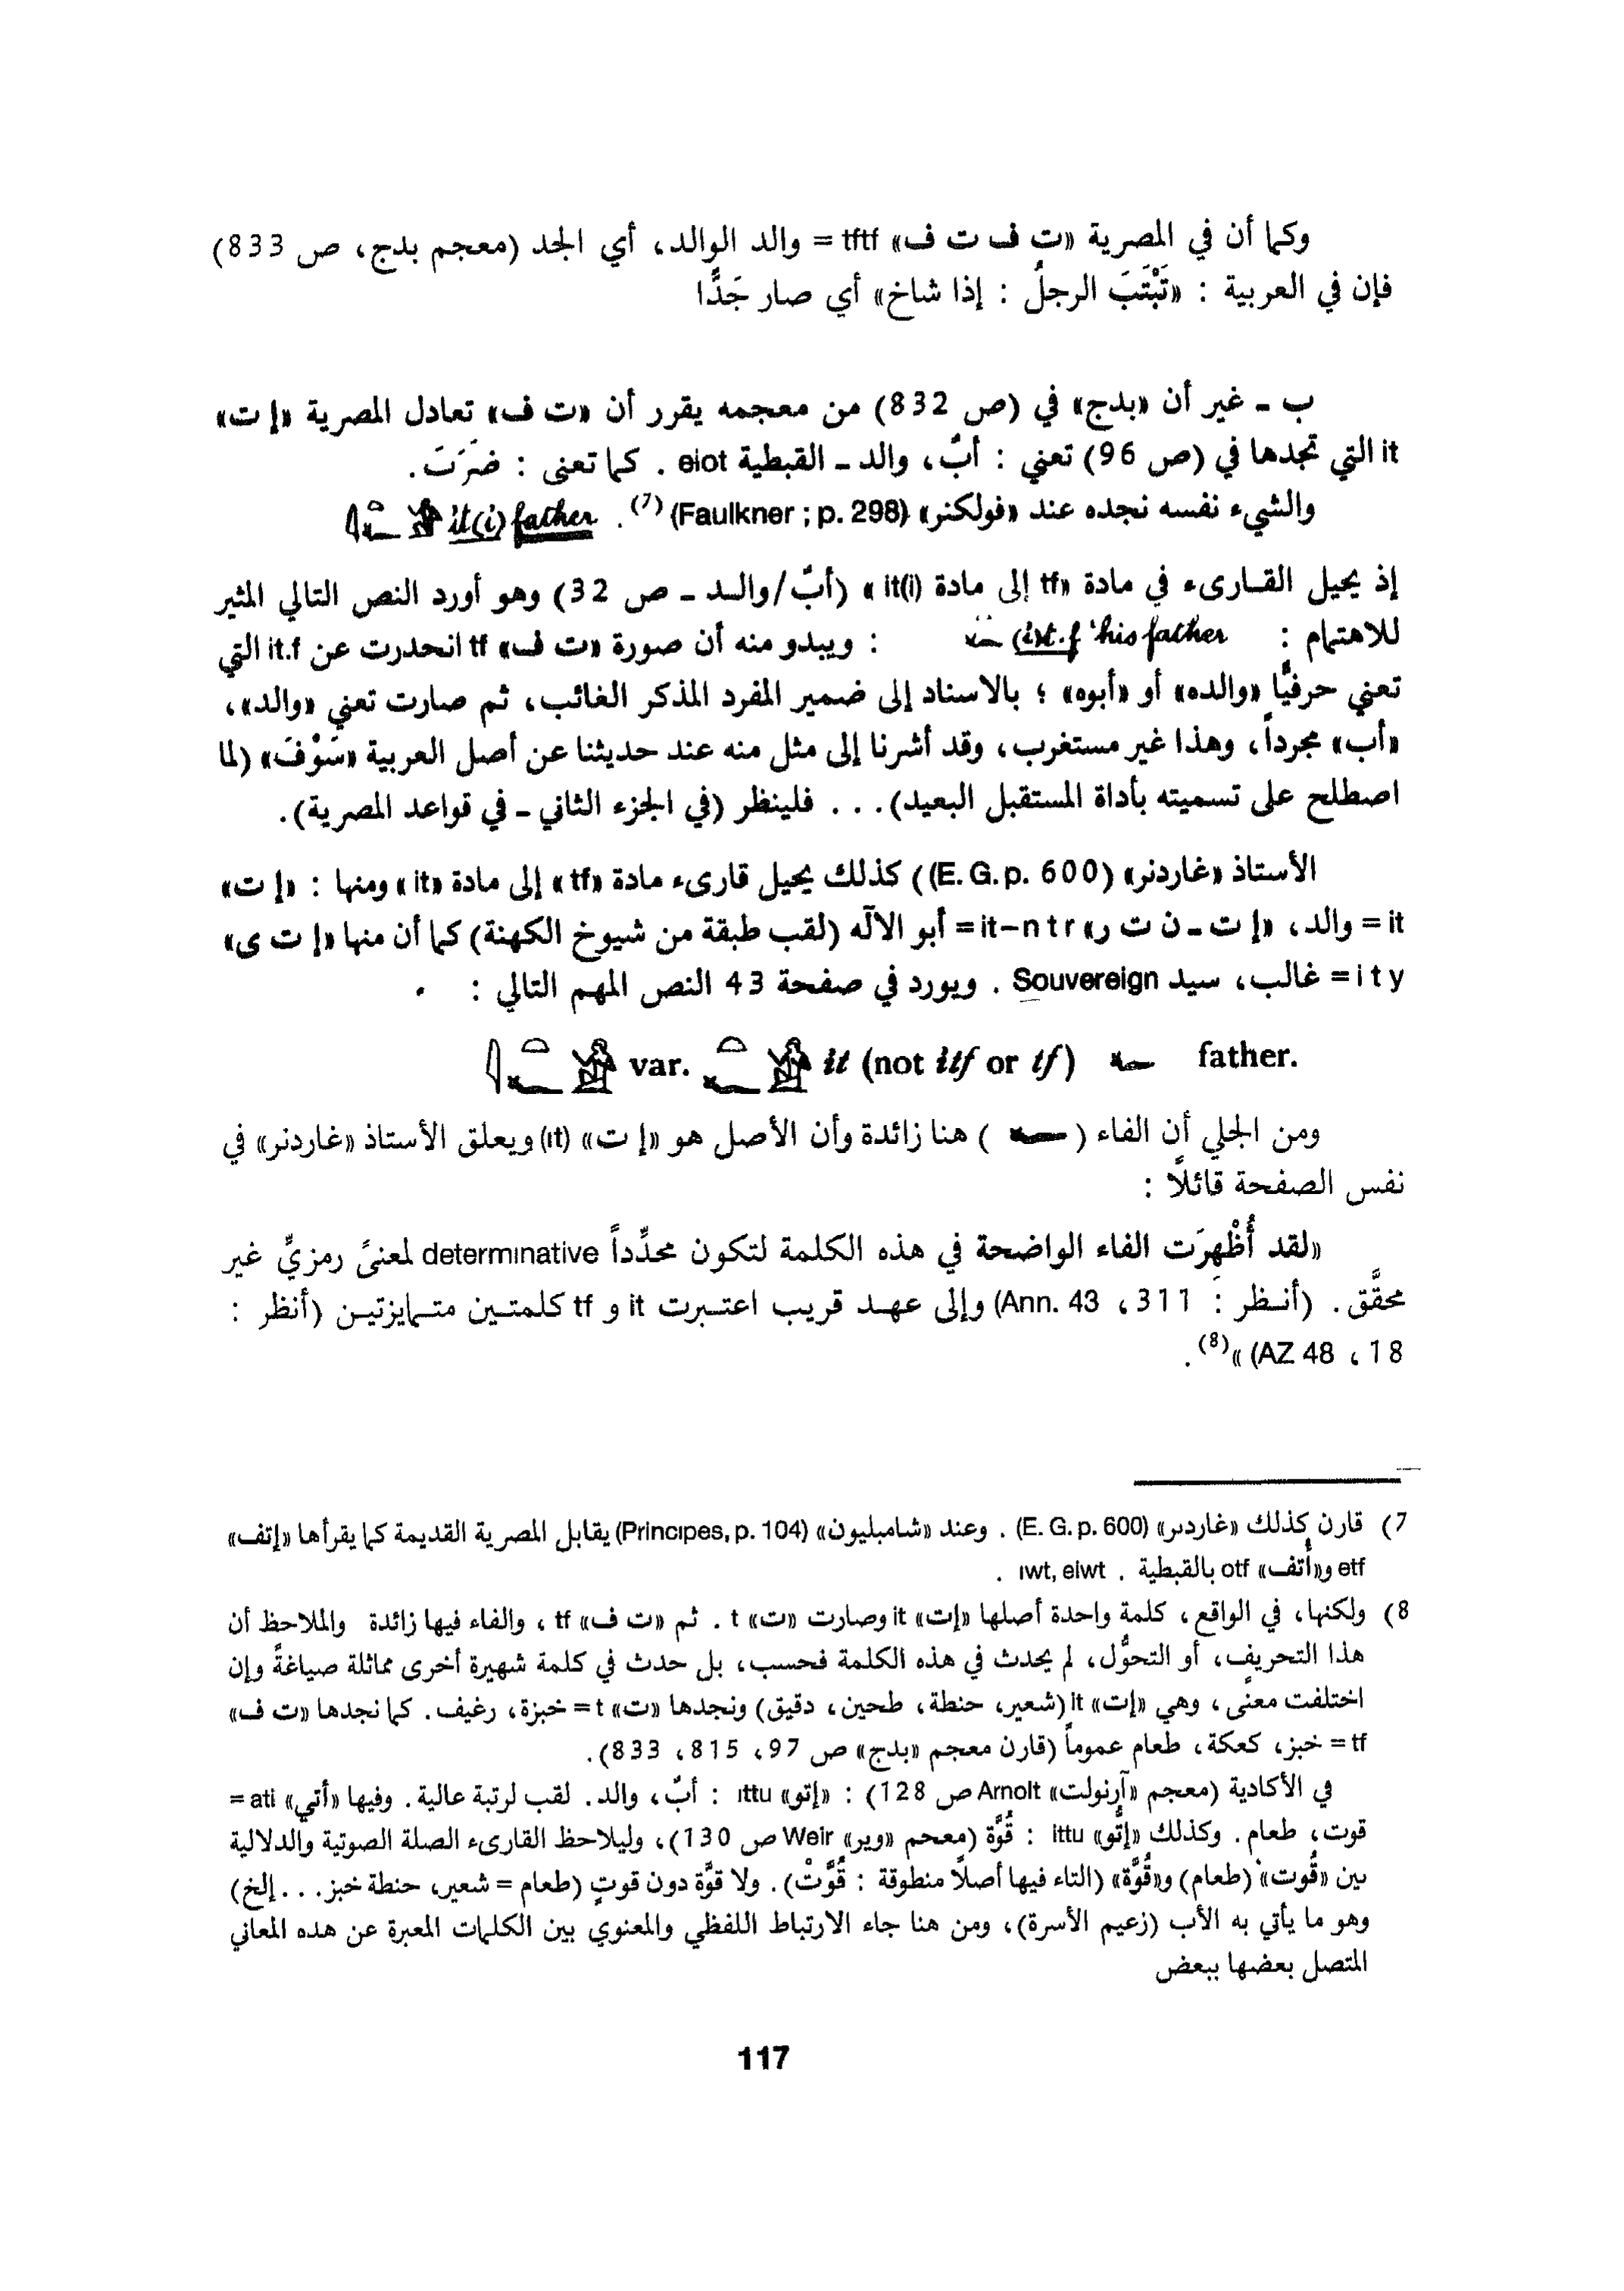 وكما أن في المصرية «ت ف ت ف» tftf = والد الوالد، أي الجد (معجم بدج، ص 833)
فإن في العربية : «تَبْتَبَ الرجلُ : إذا شاخ» أي صار جَدًّا
ب ـ غير أن «بدج» في (ص 832) من معجمه يقرر أن «ت ف» تعادل المصرية «إ ت»
it التي تجدها في (ص 96) تعني : أبٌ، والد ـ القبطية eiot . كما تعنى : ضَرَتَ.
والشيء نفسه نجده عند «فولكنر» (Faulkner ; p. 298) (7) . it(i) father
إذ يحيل القـارىء في مادة «tf إلى مادة it(i) » (أبٌ/والـد ـ ص 32) وهو أورد النص التالي المثير
للاهتمام : (i)t.f 'his father : ويبدو منه أن صورة «ت ف» tf انحدرت عن it.f التي
تعني حرفيًّا «والده» أو «أبوه» ؛ بالاسناد إلى ضمير المفرد المذكر الغائب، ثم صارت تعني «والد»،
«أب» مجرداً، وهذا غير مستغرب، وقد أشرنا إلى مثل منه عند حديثنا عن أصل العربية «سَوْفَ» (لما
اصطلح على تسميته بأداة المستقبل البعيد) . . . فلينظر (في الجزء الثاني ـ في قواعد المصرية).
الأستاذ «غاردنر» (E. G. p. 600)) كذلك يحيل قارىء مادة «tf » إلى مادة «it » ومنها : «إ ت»
it = والد، «إ ت ـ ن ت ر» it-n t r = أبو الآله (لقب طبقة من شيوخ الكهنة) كما أن منها «إ ت ى»
i t y = غالب، سيد Souvereign . ويورد في صفحة 43 النص المهم التالي :
var. it (not itf or tf) father.
ومن الجلي أن الفاء ( ) هنا زائدة وأن الأصل هو «إ ت» (ıt) ويعلق الأستاذ «غاردنر» في
نفس الصفحة قائلاً :
«لقد أُظْهِرَت الفاء الواضحة في هذه الكلمة لتكون محدِّداً determınative لمعنىً رمزيٍّ غير
محقَّق . (أنـظر : 311 ، Ann. 43) وإلى عهـد قريب اعتـبرت it و tf كلمتـين متـمايزتيـن (أنظر :
18 ، AZ 48) »(8) .
7) قارن كذلك «غاردىر» (E. G. p. 600) . وعند «شامبليون» (Princıpes, p. 104) يقابل المصرية القديمة كما يقرأها «إتف»
etf و«أتف» otf بالقبطية . ıwt, eiwt .
8) ولكنها، في الواقع، كلمة واحدة أصلها «إت» it وصارت «ت» t . ثم «ت ف» tf ، والفاء فيها زائدة والملاحظ أن
هذا التحريف، أو التحوُّل، لم يحدث في هذه الكلمة فحسب، بل حدث في كلمة شهيرة أخرى مماثلة صياغةً وإن
اختلفت معنًى، وهي «إت» it (شعير، حنطة، طحين، دقيق) ونجدها «ت» t = خبزة، رغيف. كما نجدها «ت ف»
tf = خبز، كعكة، طعام عموماً (قارن معجم «بدج» ص 97، 815، 833).
في الأكادية (معجم «آرنولت» Arnolt ص 128) : «إتو» ıttu : أبٌ، والد. لقب لرتبة عالية. وفيها «أتي» ati =
قوت، طعام. وكذلك «إتُّو» ittu : قُوَّة (معحم «وير» Weir ص 130)، وليلاحظ القارىء الصلة الصوتية والدلالية
بين «قُوت» (طعام) و«قُوَّة» (التاء فيها أصلاً منطوقة : قُوَّتْ). ولا قوَّة دون قوتٍ (طعام = شعير، حنطة خبز. . . إلخ)
وهو ما يأتي به الأب (زعيم الأسرة)، ومن هنا جاء الارتباط اللفظي والمعنوي بين الكلمات المعبرة عن هده المعاني
المتصل بعضها ببعض
117